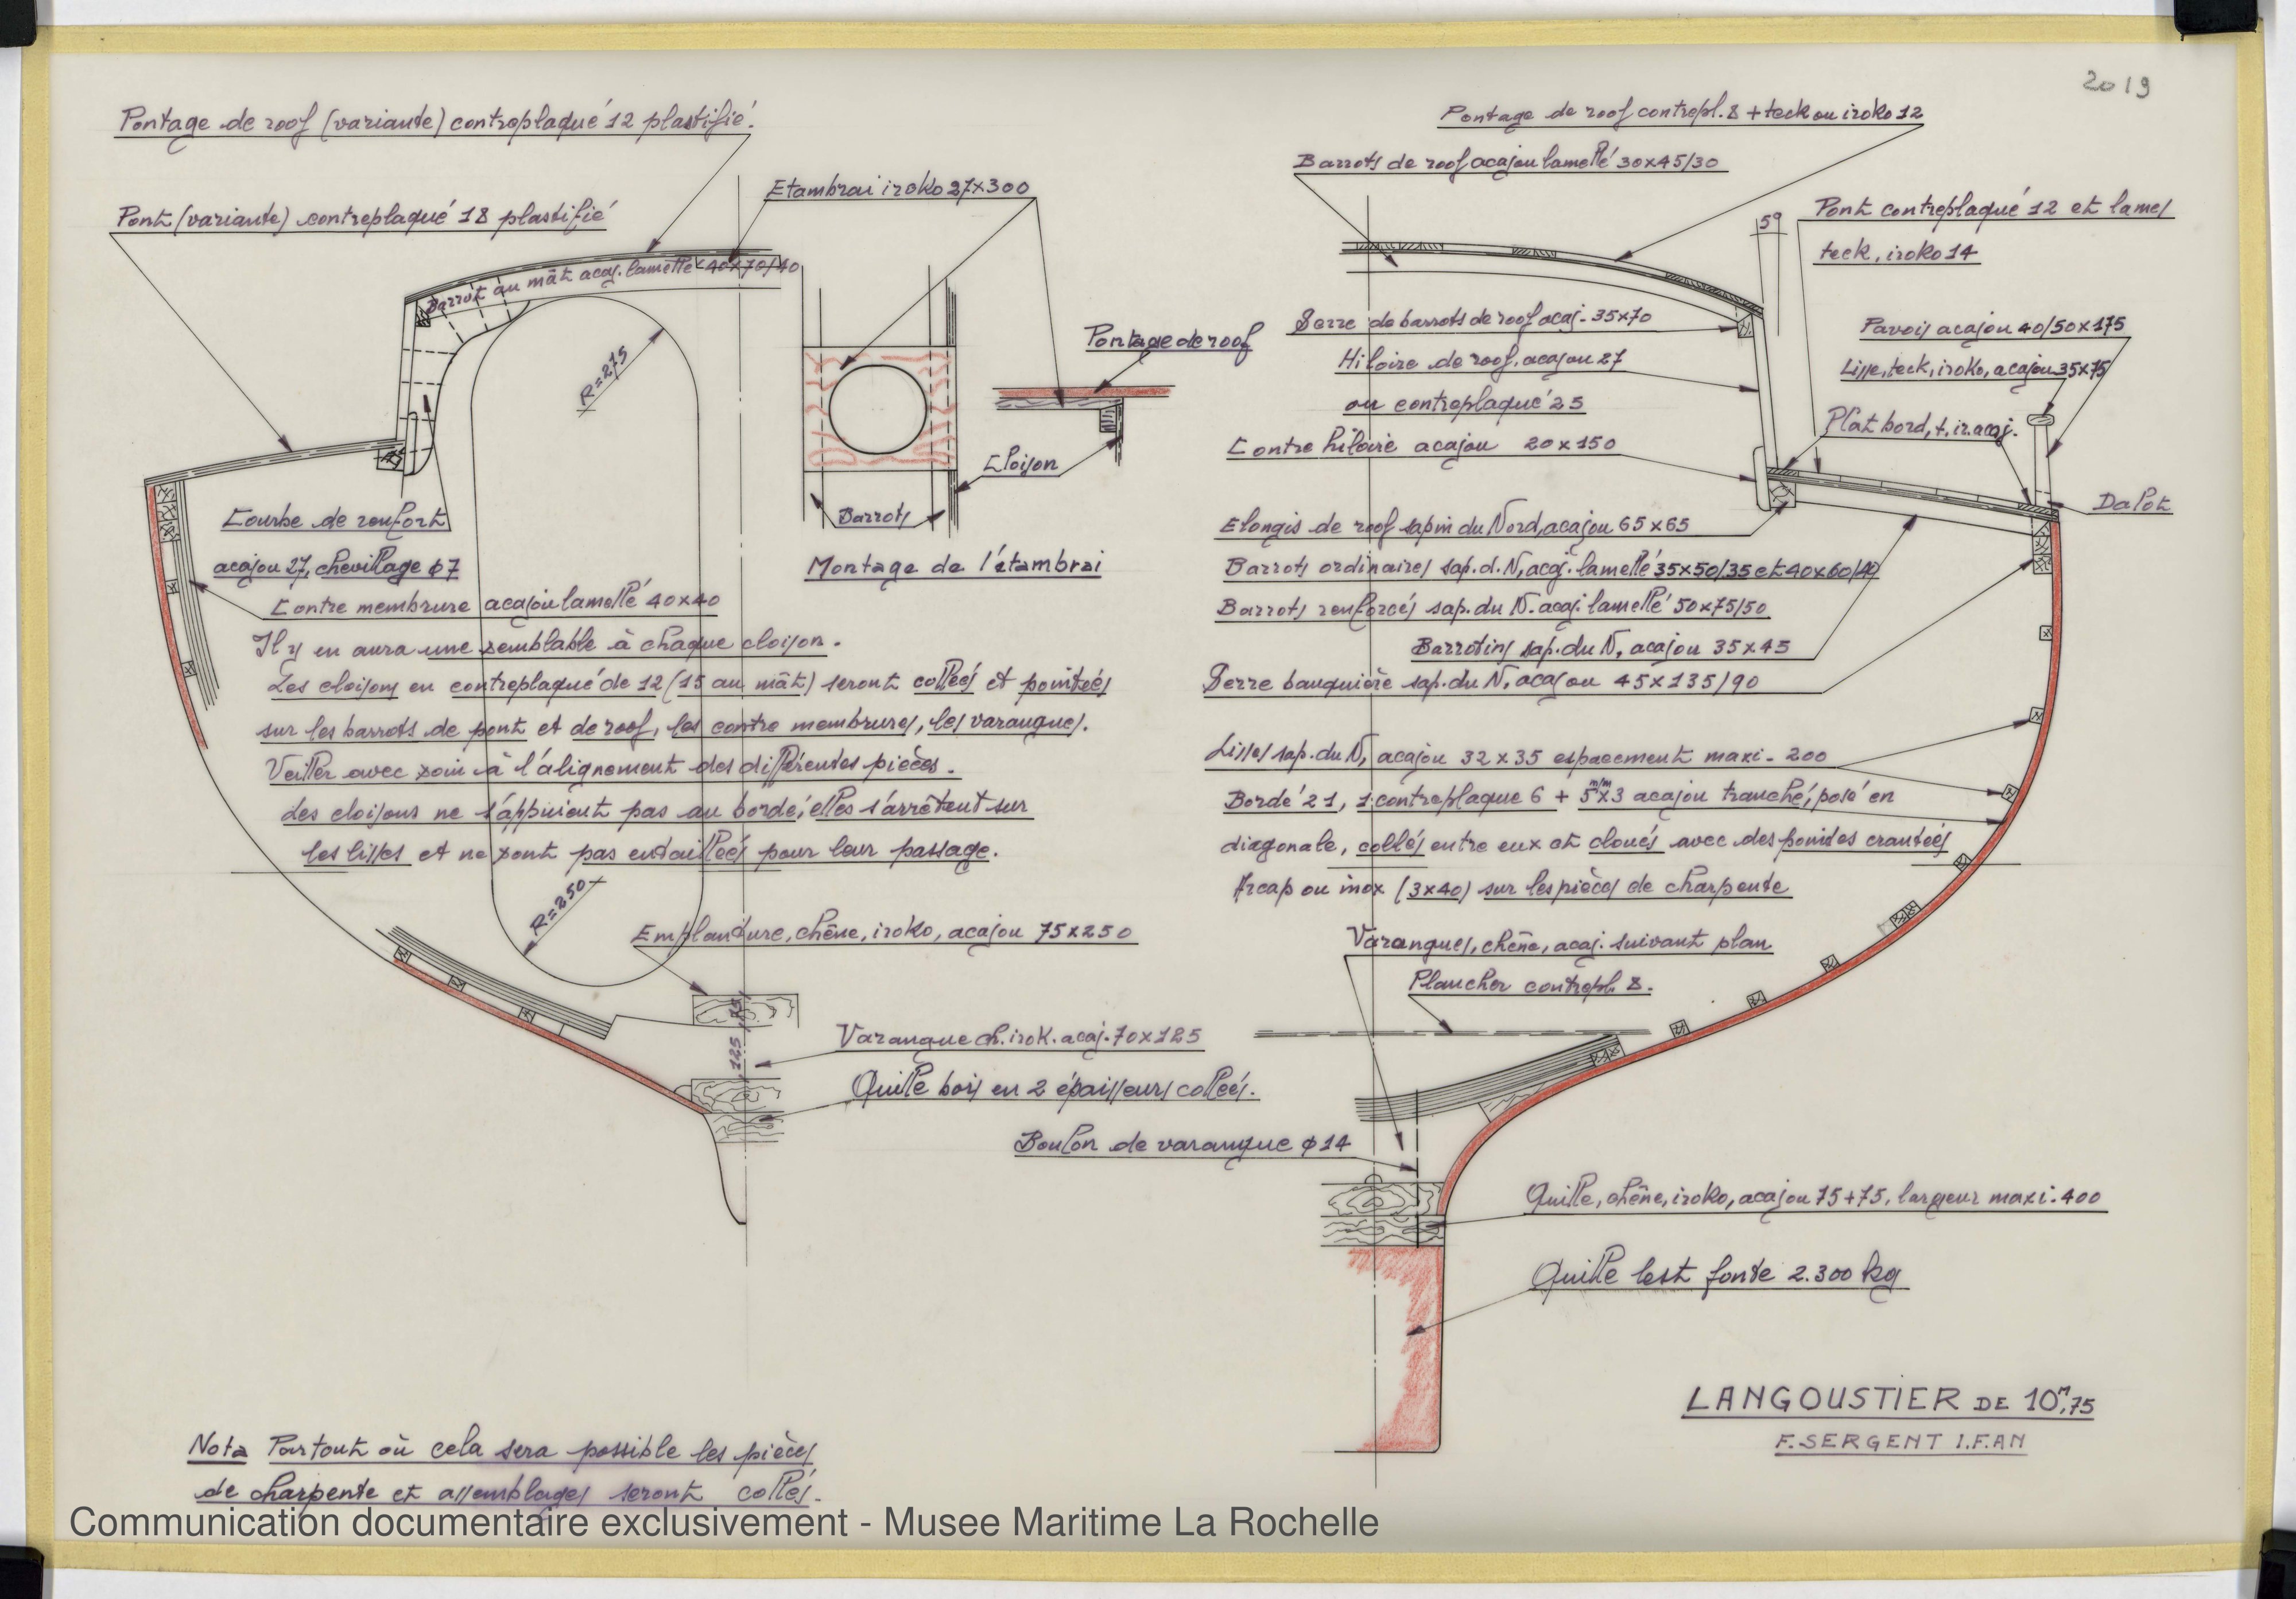 2019
Pontage de roof (variante) contreplaqué 12 plastifié.
Pont (variante) contreplaqué 18 plastifié
Etambrai iroko 27x300
Barrot au mât acaj. lamellé 40x70/40
R=275
Pontage de roof
Cloison
Barrots
Montage de l'étambrai
Courbe de renfort
acajou 27, chevillage φ7
Contre membrure acajou lamellé 40x40
Il y en aura une semblable à chaque cloison.
Les cloisons en contreplaqué de 12 (15 au mât) seront collées et pointées
sur les barrots de pont et de roof, les contre membrures, les varangues.
Veiller avec soin à l'alignement des différentes pièces.
Les cloisons ne s'appuient pas au bordé, elles s'arrêtent sur
les lisses et ne sont pas entaillées pour leur passage.
R=250
Emplanture, chêne, iroko, acajou 75x250
75
125
Varangue ch. irok. acaj. 70x125
Quille bois en 2 épaisseurs collées.
Nota Partout où cela sera possible les pièces
de charpente et assemblages seront collés.
Pontage de roof contrepl. 8 + teck ou iroko 12
Barrots de roof acajou lamellé 30x45/30
5°
Pont contreplaqué 12 et lames
teck, iroko 14
Serre de barrots de roof acaj. 35x70
Hiloire de roof, acajou 27
ou contreplaqué 25
Contre hiloire acajou 20x150
Pavois acajou 40/50x175
Lisse, teck, iroko, acajou 35x75
Plat bord, t. ir. acaj.
Dalot
Elongis de roof sapin du Nord, acajou 65x65
Barrots ordinaires sap. d. N, acaj. lamellé 35x50/35 et 40x60/40
Barrots renforcés sap. du N. acaj. lamellé 50x75/50
Barrotins sap. du N, acajou 35x45
Serre bauquière sap. du N, acajou 45x135/90
Lisses sap. du N, acajou 32x35 espacement maxi. 200
Bordé 21, 1 contreplaque 6 + 5 m/m x3 acajou tranché, posé en
diagonale, collés entre eux et cloués avec des pointes crantées
Arcap ou inox (3x40) sur les pièces de charpente
Varangues, chêne, acaj. suivant plan
Plancher contrepl. 8.
Boulon de varangue φ14
Quille, chêne, iroko, acajou 75+75, largeur maxi. 400
Quille lest fonte 2.300 kg
LANGOUSTIER DE 10m,75
F. SERGENT I.F.AN
Communication documentaire exclusivement - Musee Maritime La Rochelle